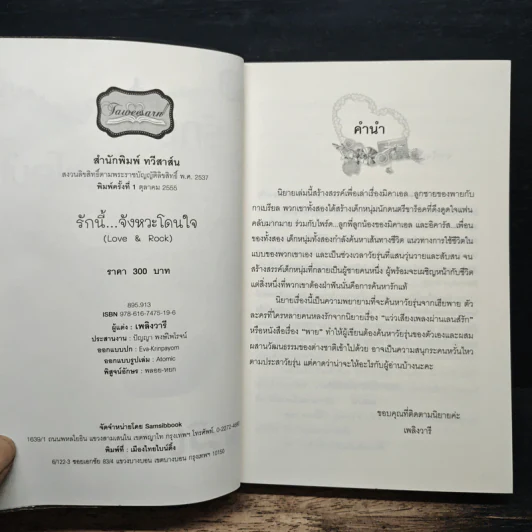 Taweesarn
สำนักพิมพ์ ทวีสาส์น
สงวนลิขสิทธิ์ตามพระราชบัญญัติลิขสิทธิ์ พ.ศ. 2537
พิมพ์ครั้งที่ 1 ตุลาคม 2555
รักนี้...จังหวะโดนใจ
(Love & Rock)
ราคา 300 บาท
895.913
ISBN 978-616-7475-19-6
ผู้แต่ง : เพลิงวารี
ประสานงาน : ปัญญา พงษ์ไพโรจน์
ออกแบบปก : Eva-Krinpayom
ออกแบบรูปเล่ม : Atomic
พิสูจน์อักษร : พลอย-หยก
จัดจำหน่ายโดย Samsibbook
1639/1 ถนนพหลโยธิน แขวงสามเสนใน เขตพญาไท กรุงเทพฯ โทรศัพท์.
พิมพ์ที่ : เมืองไทยไบน์ดิ้ง
6/122-3 ซอยเอกชัย 83/4 แขวงบางบอน เขตบางบอน กรุงเทพฯ 10150
คำนำ
นิยายเล่มนี้สร้างสรรค์เพื่อเล่าเรื่องมิคาเอล...ลูกชายของพายกับ
กาเบรียล พวกเขาทั้งสองได้สร้างเด็กหนุ่มนักดนตรีชาร็อคที่ดึงดูดใจแฟน
คลับมากมาย ร่วมกับไพร์ด...ลูกพี่ลูกน้องของมิคาเอล และอิคารัส...เพื่อน
ของทั้งสอง เด็กหนุ่มทั้งสองกำลังค้นหาเส้นทางชีวิต แนวทางการใช้ชีวิตใน
แบบของพวกเขาเอง และเป็นช่วงเวลาวัยรุ่นที่แสนวุ่นวายและสับสน จน
สร้างสรรค์เด็กหนุ่มที่กลายเป็นผู้ชายคนหนึ่ง ผู้พร้อมจะเผชิญหน้ากับชีวิต
แต่สิ่งหนึ่งที่พวกเขาต้องฝ่าฟันนั่นคือการค้นหารักแท้
นิยายเรื่องนี้เป็นความพยายามที่จะค้นหาวัยรุ่นจากเสียพาย ตัว
ละครที่ใครหลายคนหลงรักจากนิยายเรื่อง “แว่วเสียงเพลงผ่านเลนส์รัก”
หรือหนังสือเรื่อง “พาย” ทำให้ผู้เขียนต้องค้นหาวัยรุ่นของตัวเองและผสม
ผสานวัฒนธรรมของต่างชาติเข้าไปด้วย อาจเป็นความสนุกระคนหวั่นไหว
ตามประสาวัยรุ่น แต่คาดว่าน่าจะให้อะไรกับผู้อ่านบ้างนะคะ
ขอบคุณที่ติดตามนิยายค่ะ
เพลิงวารี